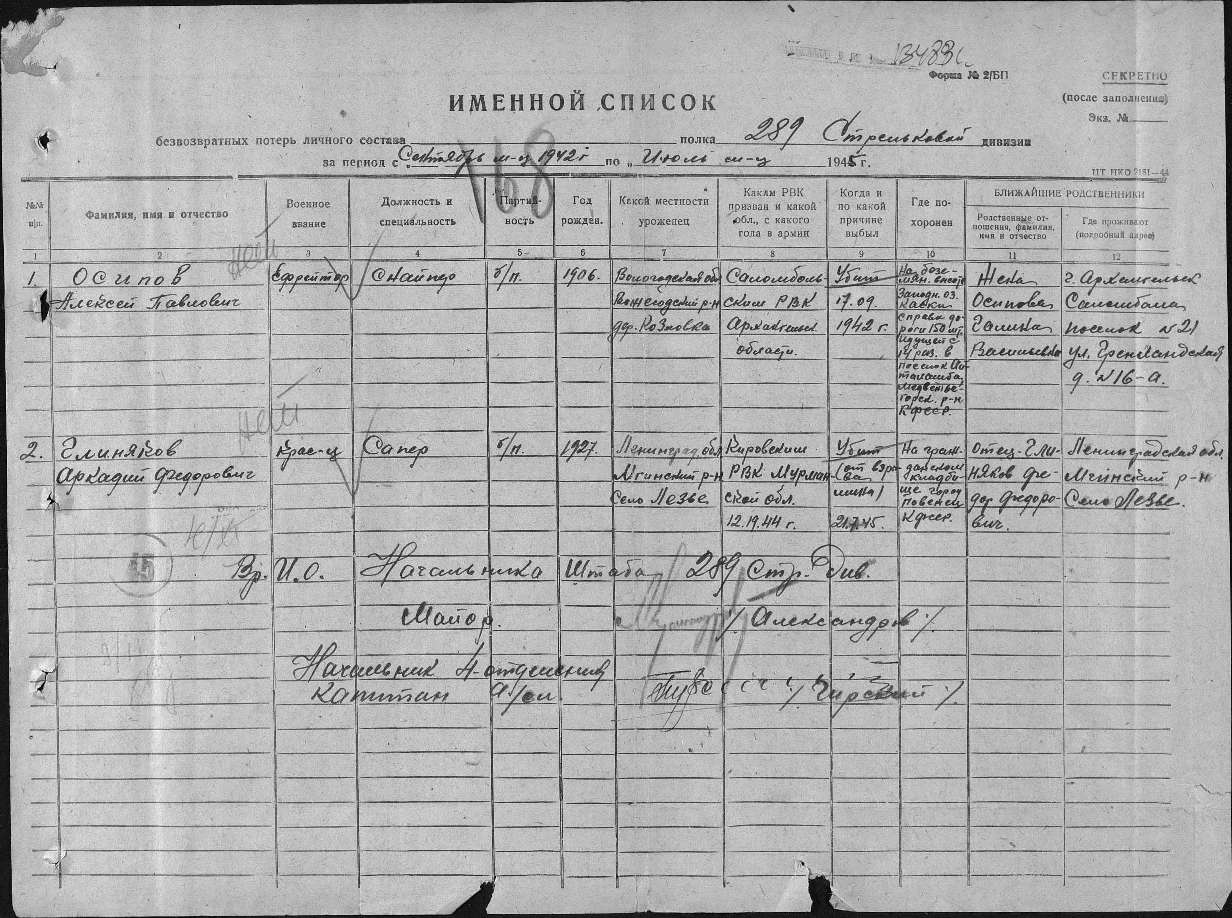 13483с
Форма № 2/БП
СЕКРЕТНО
(после заполнения)
Экз. №
ИМЕННОЙ СПИСОК
безвозвратных потерь личного состава полка 289 Стрелковой дивизии
за период с Сентябрь м-ц 1942 г по „ Июль м-ц 1945 г.
168
№№ п/п.
Фамилия, имя и отчество
Военное звание
Должность и специальность
Партий-
ность
Год рожден.
Какой местности уроженец
Каким РВК призван и какой обл., с какого года в армии
Когда и по какой причине выбыл
Где по-
хоронен
БЛИЖАЙШИЕ РОДСТВЕННИКИ
Родственные от-
ношения, фамилия, имя и отчество
Где проживают (подробный адрес)
1 2 3 4 5 6 7 8 9 10 11 12
нет
1. Осипов Ефрейтор Снайпер б/п. 1906. Вологодская обл Саломболь- Убит На безы-
Алексей Павлович
Вожегодский р-н
дер. Козловка
ским РВК
Архангельск
области.
17.09.
1942 г.
мян. высоте
Западн. оз.
справа до-
роги 150 мт.
идущей с
14 раз. в
поселок
Медвежье-
горск. р-н
КФССР.
Жена
Осипова
Галина
Васильевна
г. Архангельск
Саломбала
поселок №21
ул. Гренландская
д. №16-а.
нет
2. Глиняков Крас-ц Сапер б/п. 1927. Ленинград. обл Кировским Убит На граж-
Аркадий Федорович
Мгинский р-н
Село Лезье
РВК Мурман
ской обл.
12.19.44 г.
(от взры-
ва
мины)
21.7.45.
данском
кладби-
ще город
Повенец
КФССР.
Отец-Гли-
няков Фе-
дор Федоро-
вич.
Ленинградская обл.
Мгинский р-н
Село Лезье.
45
Вр. И.О. Начальника Штаба 289 Стр. Див.
Майор. /Александров/.
Начальник 4-отделения
Капитан а/сл.